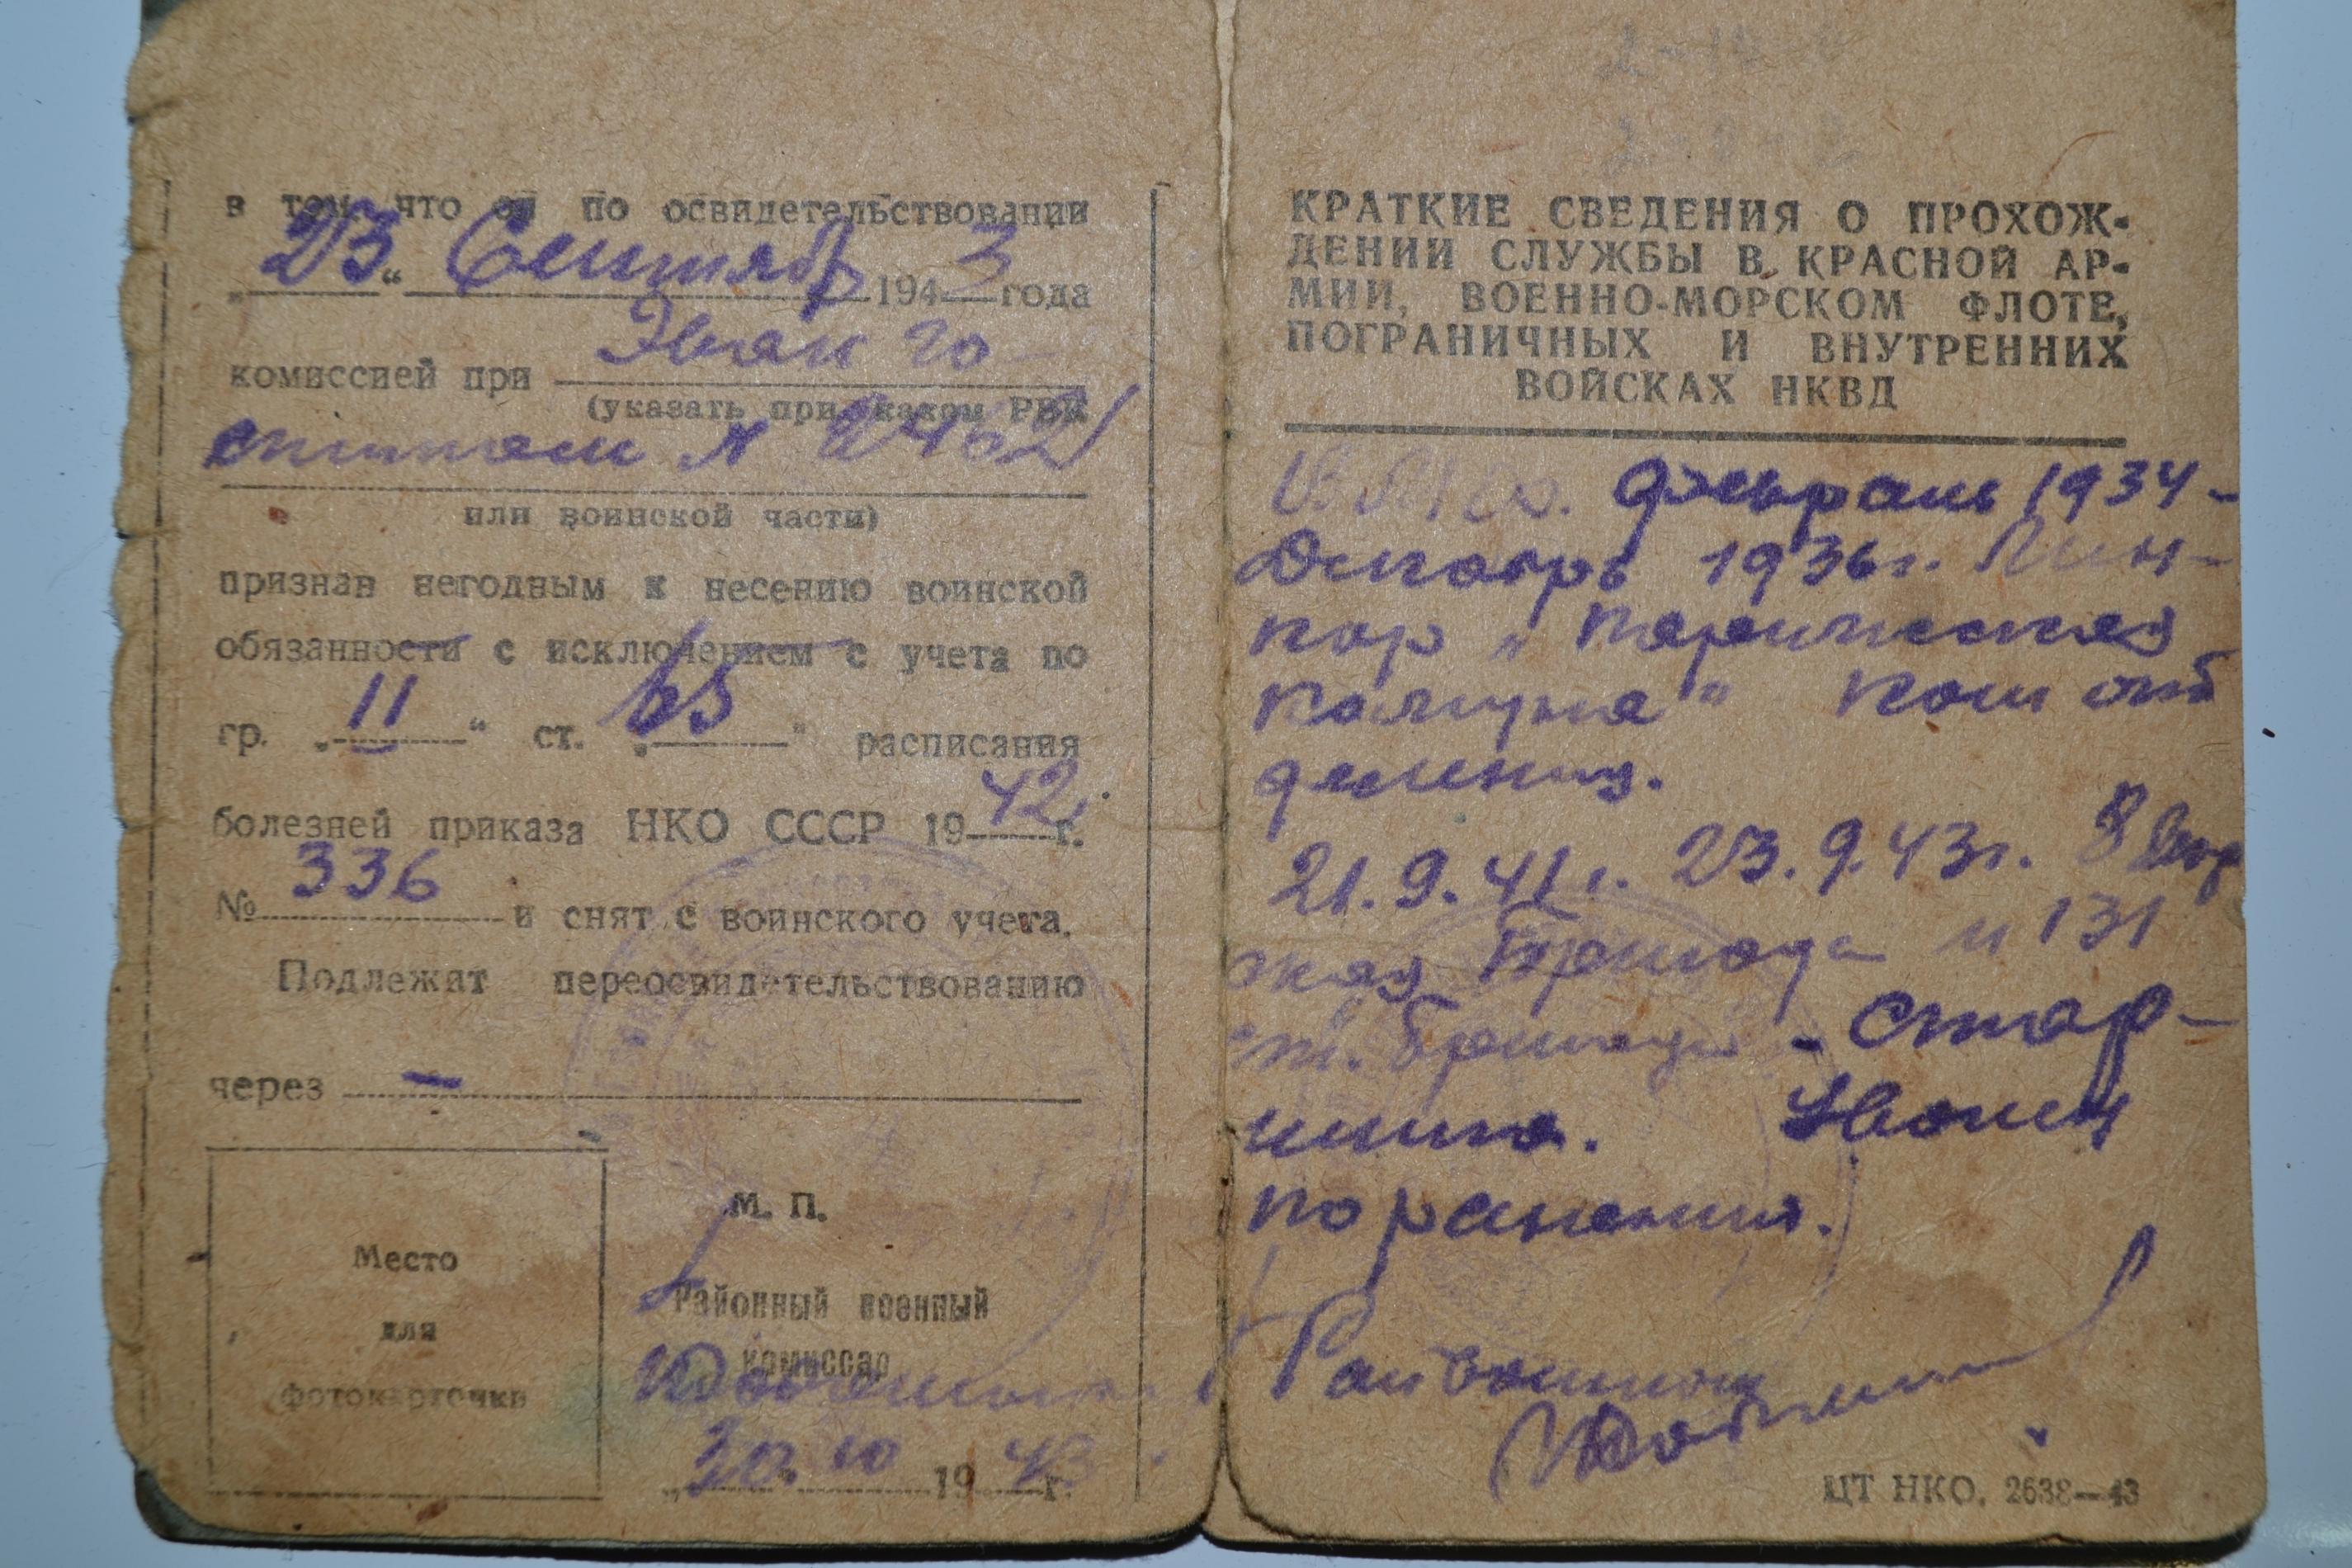 в том, что он по освидетельствовании
„23“ Сентябр 1943 года
комиссией при Эвак го
(указать при каком РВК
спитале № 2462
или воинской части)
признан негодным к несению воинской
обязанности с исключением с учета по
гр. „II“ ст. „65“ расписания
болезней приказа НКО СССР 1942 г.
№ 336 и снят с воинского учета.
Подлежит переосвидетельствованию
через —
М. П.
Место
для
фотокарточки
Районный военный
комиссар
„30“ 10 1943 г.
КРАТКИЕ СВЕДЕНИЯ О ПРОХОЖ-
ДЕНИИ СЛУЖБЫ В КРАСНОЙ АР-
МИИ, ВОЕННО-МОРСКОМ ФЛОТЕ,
ПОГРАНИЧНЫХ И ВНУТРЕННИХ
ВОЙСКАХ НКВД
Февраль 1934-
Декабрь 1936г. Лин-
кор „Парижская
Камуна" Ком отб
деления.
21.9.41г. 23.9.43г. 8 Мор
ская Бригада и 131
ст. бригады - Стар-
шина. Уволен
по ранению.
Райвоенком
ЦТ НКО. 2638—43